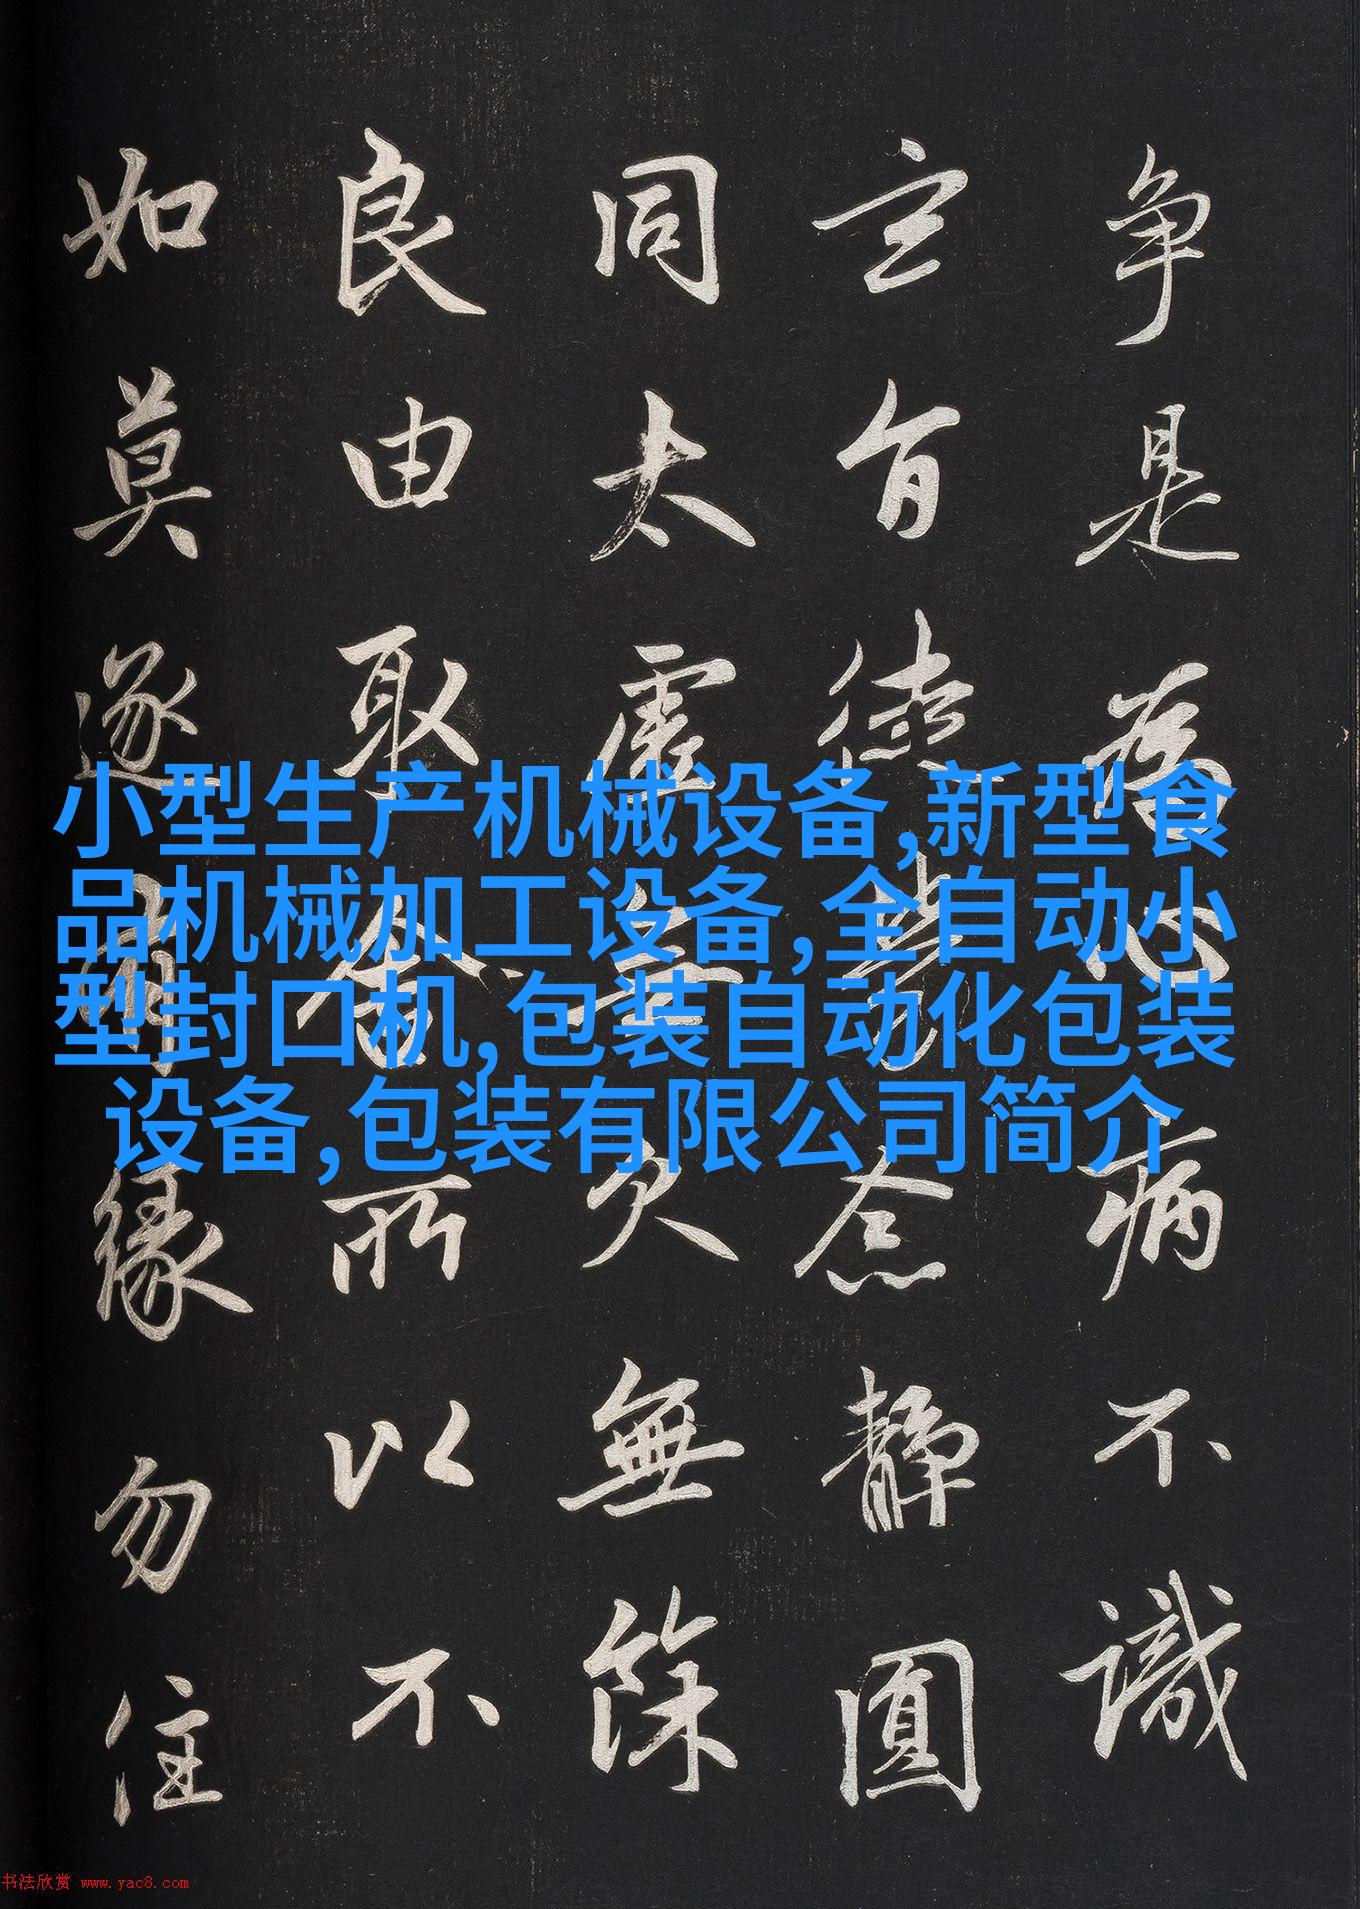 争是為心病不識
玄旨徒勞念靜圓
同太虛无欠無餘
良由取舍所以不
如莫逐有緣勿住
小型生产机械设备,新型食
品机械加工设备,全自动小
型封口机,包装自动化包装
设备,包装有限公司简介
书法欣赏 www.yac8.com